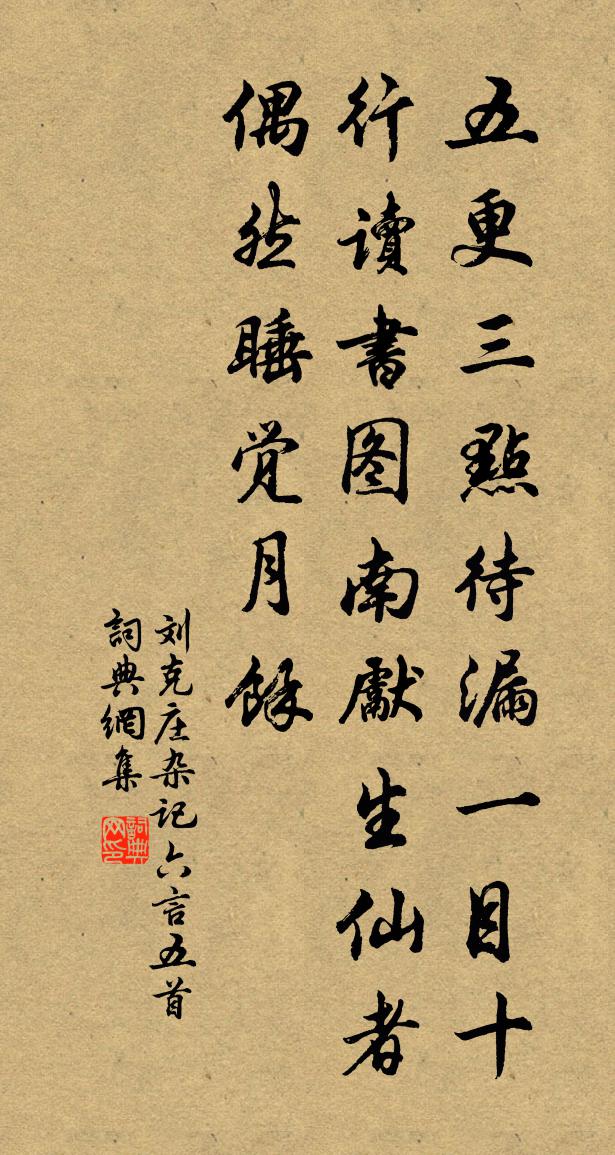 五更三點待漏一目十
行讀書图南獻生仙者
偶然睡觉月餘
刘克庄杂记六言五首
詞典網集
詞典网印